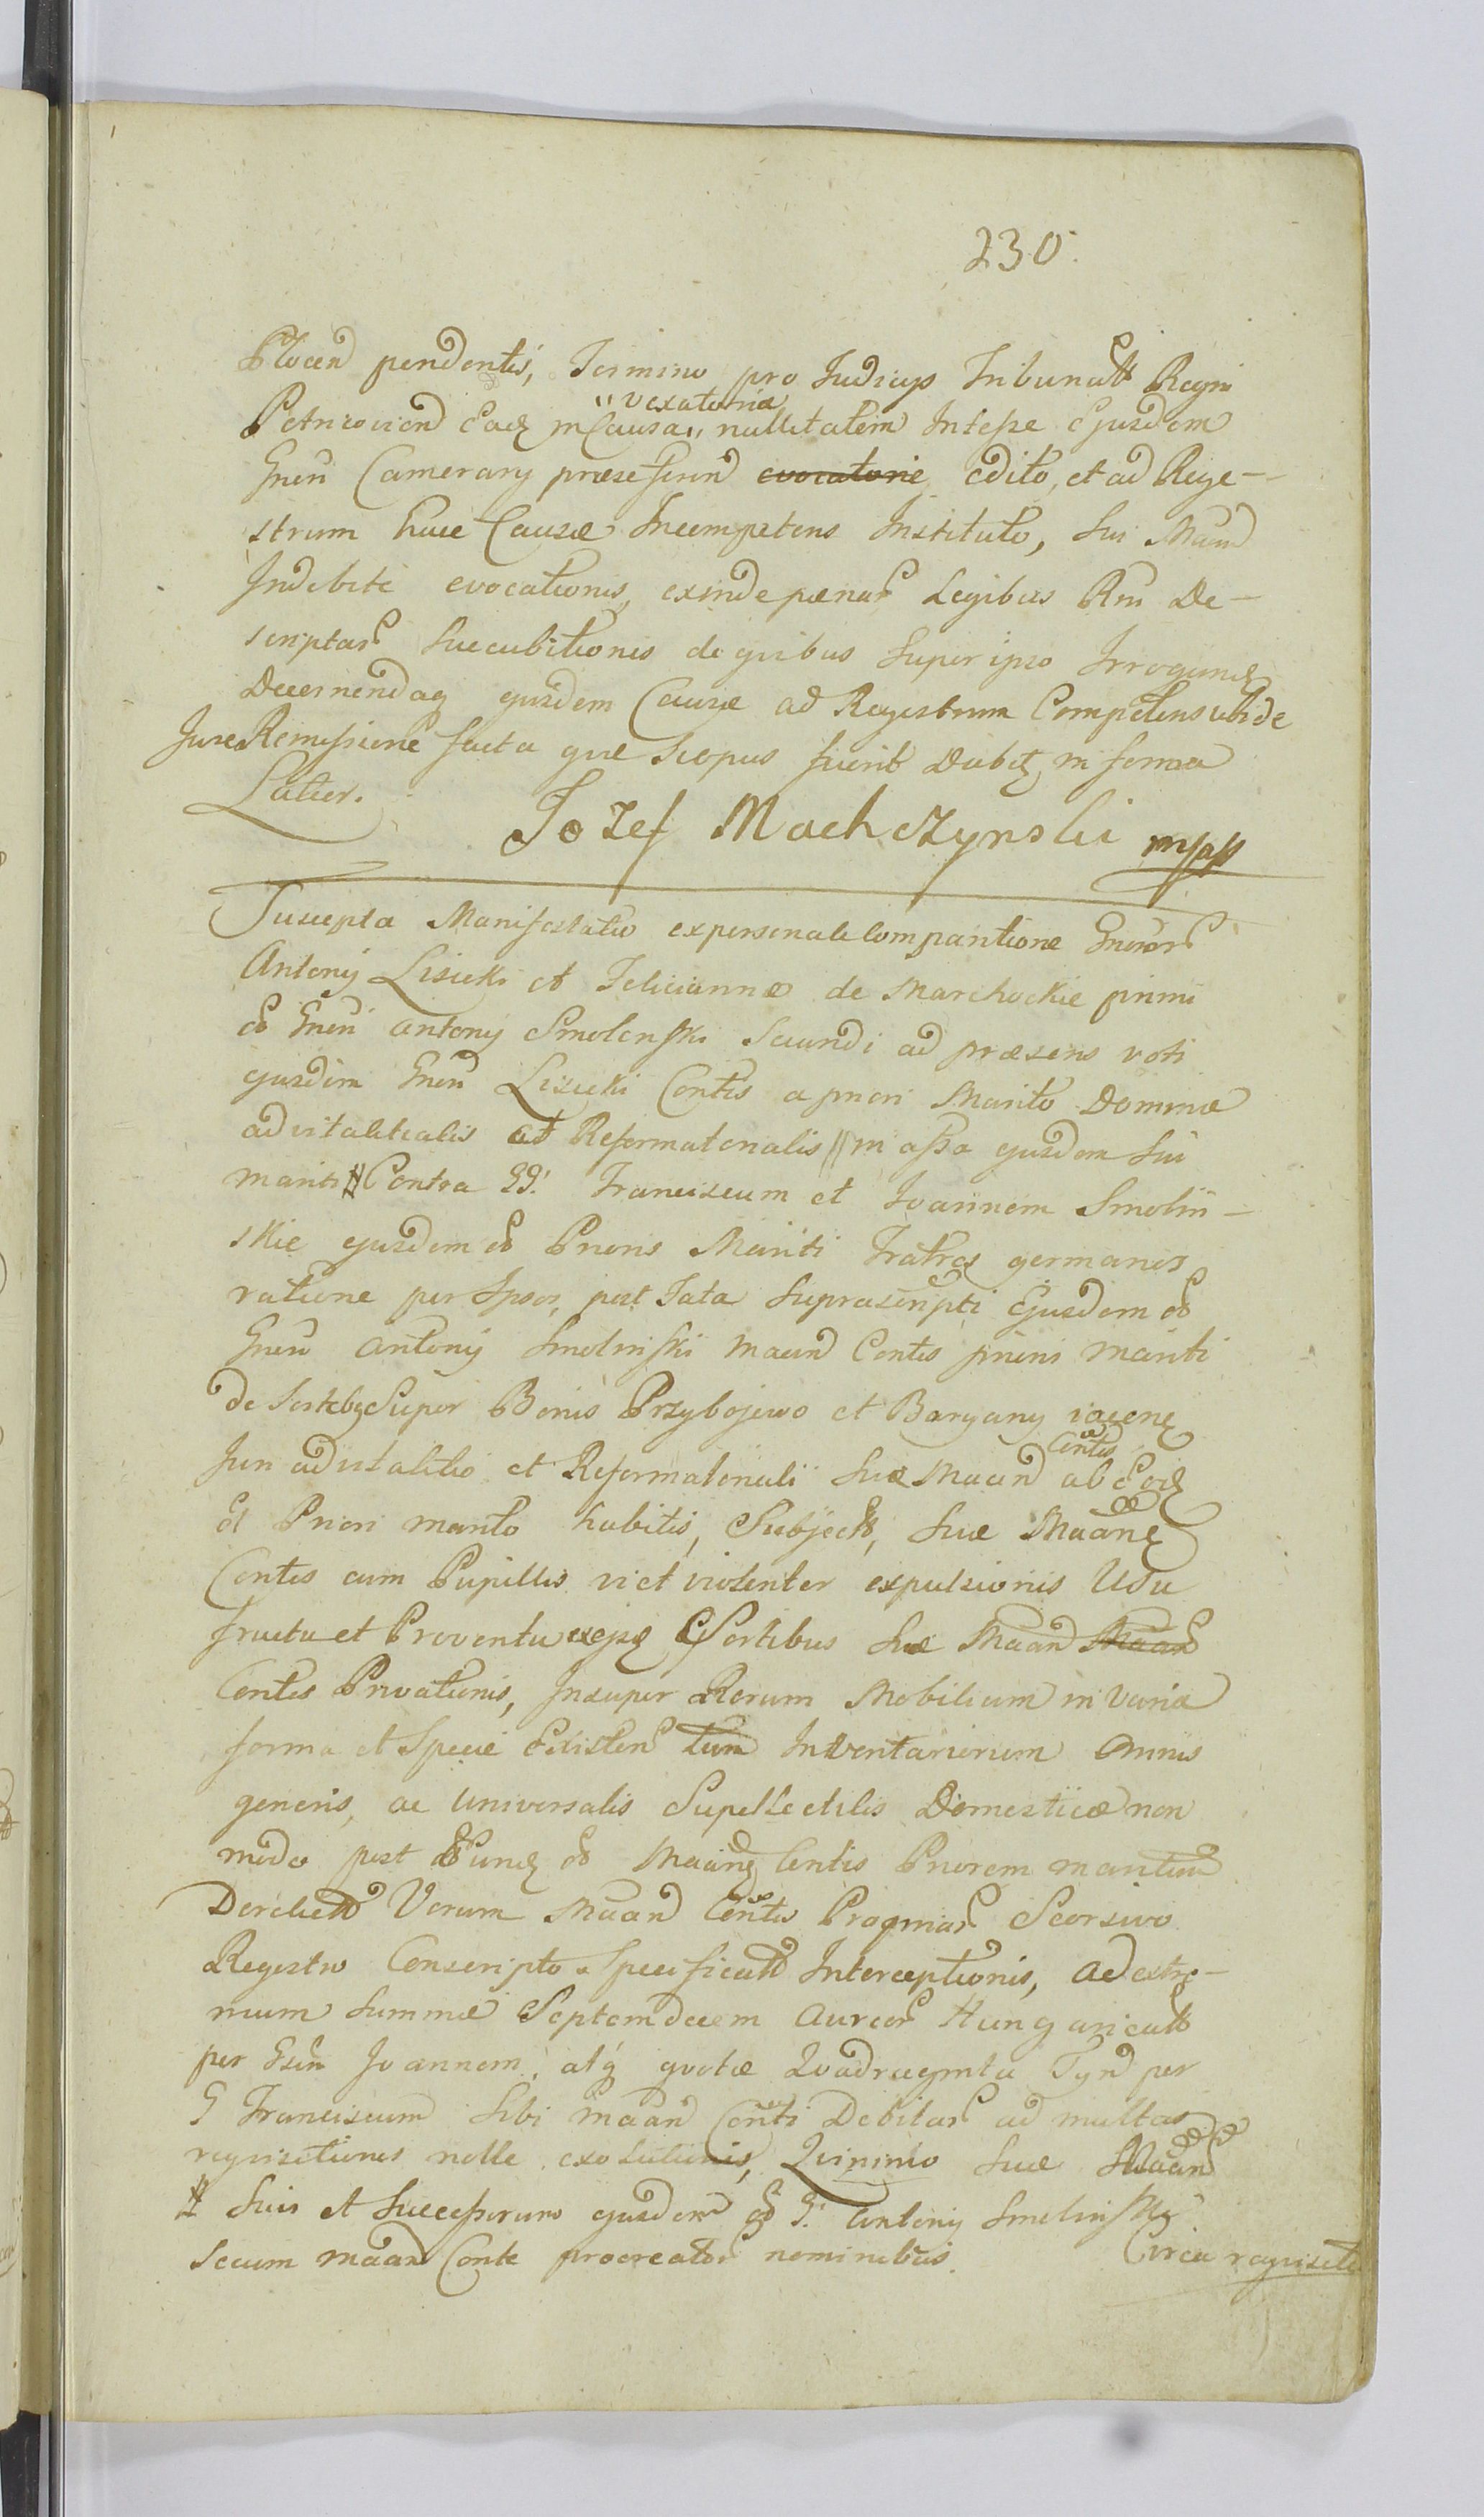 230.
Plocen pendentis, Termino pro Judicijs Tribunall Regni
Petricovien Eadq in Causa,, nullitatem Intesse Ejusdem
,,vexatoria
Gneri Camerarij præsefferen evocatorie edito, et ad Rege-
strum huic Causæ Incompetens Instituto, sui Maan
Indebite evocationis, exinde pœnar Legibus Rni De-
scriptar succubitionis de quibus super ipso Irrogandq
Decernendaq ejusdem Causæ ad Regestrum Competens ubi de
Jure Remissione facta quæ scopus fuerit Dabitq in forma
Latior.
Jozef Machczynski mpp
Suscepta Manifestatio ex personale Comparitione Gneror
Antonij Lisicki et Felicianna de Marchockie primi
olim Gneri Antonij Smolenski Secundi ad præsens voti
ejusdem Gneri Lisicki Contis a priori Marito Domina
advitalitialis et Reformatorialis // in assa ejusdem sui
mariti # Contra GG. Franciscum et Joannem Smolin-
skie ejusdem olim Prioris Mariti Fratres germanos
ratione per Ipsos, post Fata Suprascripti Ejusdem olim
Gneri Antonij Smolinski Maan Contis primi mariti
de Sortebq Super Bonis Przybojewo et Bargany jacenq
Juri advitalitio et Reformatoriali suæ Maan Contis ab Eodq
olim Priori marito habitis, Subject, suæ Maanq
Contis cum Pupillis vi et violenter expulsionis Usu
fructu et Proventu exejsq Sortibus suæ Maan Maan
Contis Privationis, Insuper Rerum Mobilium in varia
forma et Specie Existen tum Inventariorum Omnis
generis, ac universalis Supellectilis Domesticæ non
modo post Eundq olim Maanq Contis Priorem maritum
Derelict Verum Maan Contis Propriar Seorsivo
Regestro Conscripto Specificat Interceptionis, Ad extre-
mum Summæ Septemdecem Aureor Hungaricall
per Gnrm Joannem, atq quotæ Quadraginta Tyn per
G Franciscum Sibi maan Conti Debitar ad multas
requisitiones nolle exolutionis, Quinimo suæ Maan
# Suis et Successorum ejusdem olim G. Antonij Smolinski
secum maan Conte procreator nominibus.
Circa requisito